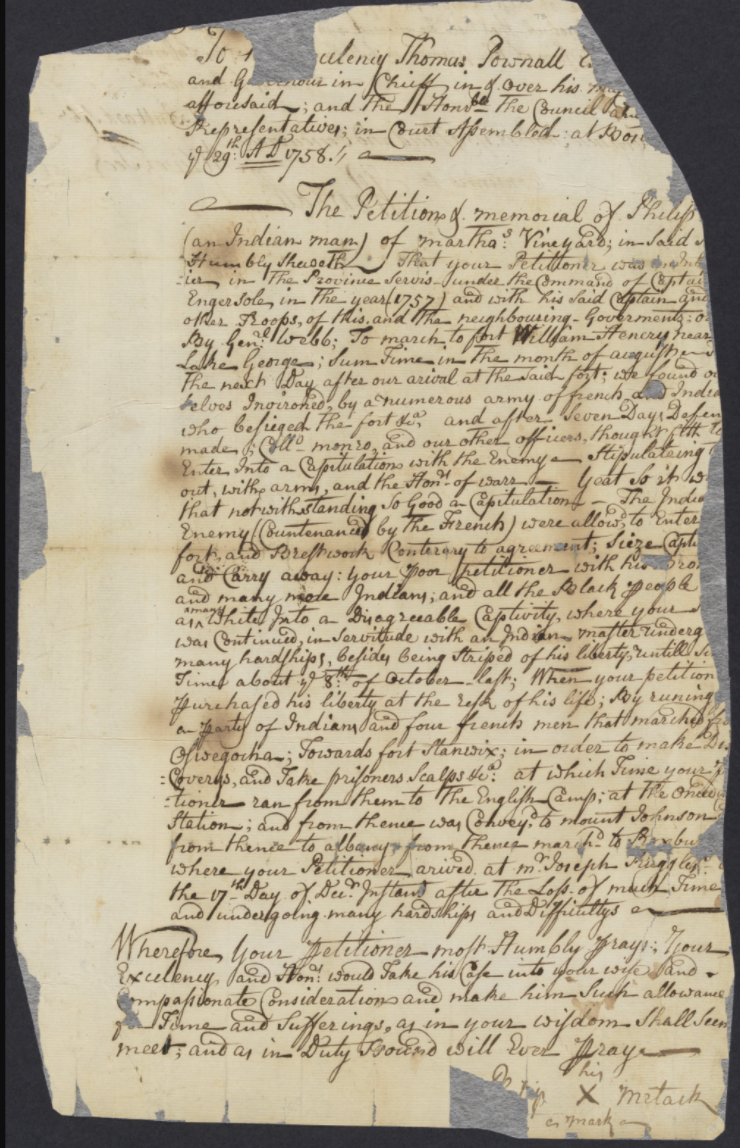 To culency Thomas Pownall
and Governour in Chieff in & Over his
afforesaid; and the Honbd The Council
Representatives; in Court Assembled: at
ye 29th AD 1758
The Petition & memorial of Philip
(an Indian man) of martha's Vineyard; in said
Humbly Sheweth That your Petitioner was
in The Province Servis under the Command of
EngerSole, in the year (1757) and with his Said Captain and
other Troops, of this, and the neighbouring Goverments
By Genl Webb; To march to fort William Henery near
Lake George; Sum Time in The month of august
The next Day after our arival at the Said fort; we found
selves Invironed, by a numerous army of french and
who besieged the fort &ca and after Seven Days
made Collo monro, and our other officers, thought fitt
Enter Into a Capitulation with the Enemy Stipulateing
out, with arms, and the Honrs of warr Yeat So it
that notwithstanding So Good a Capitulation The
Enemy (Countenanced by the French) were allowd to Enter
fort, and Brestwork Conterary to agreament; Sieze
and Carry away: your Poor petitioner with his
and many more Indians; and all the Black People
as many White Into a Disagreeable Captivity, where your
was Continued, in Servitude with an Indian master
many hardships, besides being Striped of his liberty, untill
Time about ye 8th of October last; When your
Purchased his liberty at the resk of his life; By runing
a Party of Indians and four french men that
Oswegocha; Towards fort Stanwix; in order to make
Coverys, and Take prisoners Scalps &ca at which Time your
tioner ran from them to The English Camp; at the
Station; and from thence was Convey'd to mount Johnson
from thence to albany from thence marchd to
where your Petitioner arived at mr Joseph
the 17th Day of Decr Instant after the Loss of much Time
and undergoing many hardships and Difficultys
Wherefore your Petitioner most Humbly Prays; Your
Excelency and Honrs would Take his Case into your wise and
Compassionate Consideration and make him Such allowance
Time and Sufferings, as in your wisdom Shall Seem
meet; and as in Duty Bound will Ever Pray
his
X Metack
mark